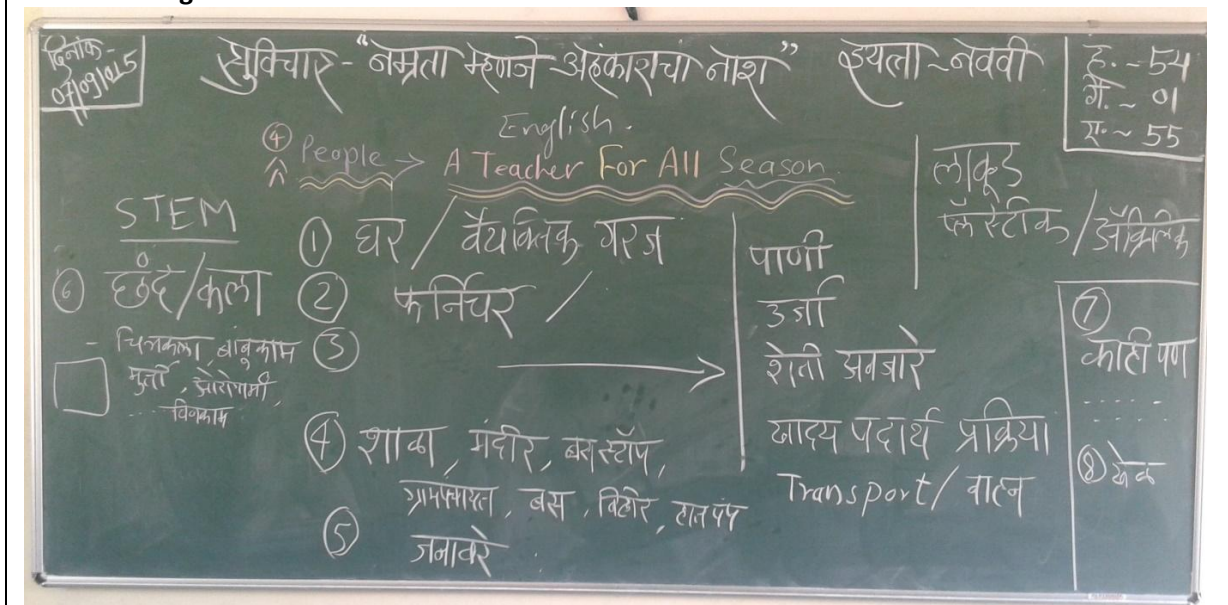 दिनांक-
07/09/015
सुविचार - "नम्रता म्हणजे अहंकाराचा नाश"
इयत्ता - नववी
ह. - 54
गै. - 01
ए. - 55
English.
④ People → A Teacher For All Season.
STEM
⑥ छंद/कला
- चित्रकला, बांबूकाम
मुर्ती,
विणकाम
① घर / वैयक्तिक गरज
② फर्निचर /
③
④ शाळा, मंदीर, बसस्टॉप,
ग्रामपंचायत, बस, विहीर, हातपंप
⑤ जनावरे
पाणी
उर्जा
शेती अवजारे
खाद्य पदार्थ प्रक्रिया
Transport / वाहन
लाकूड
प्लॅस्टीक / अ‍ॅक्रिलिक
⑦
काही पण
⑧ खेळ